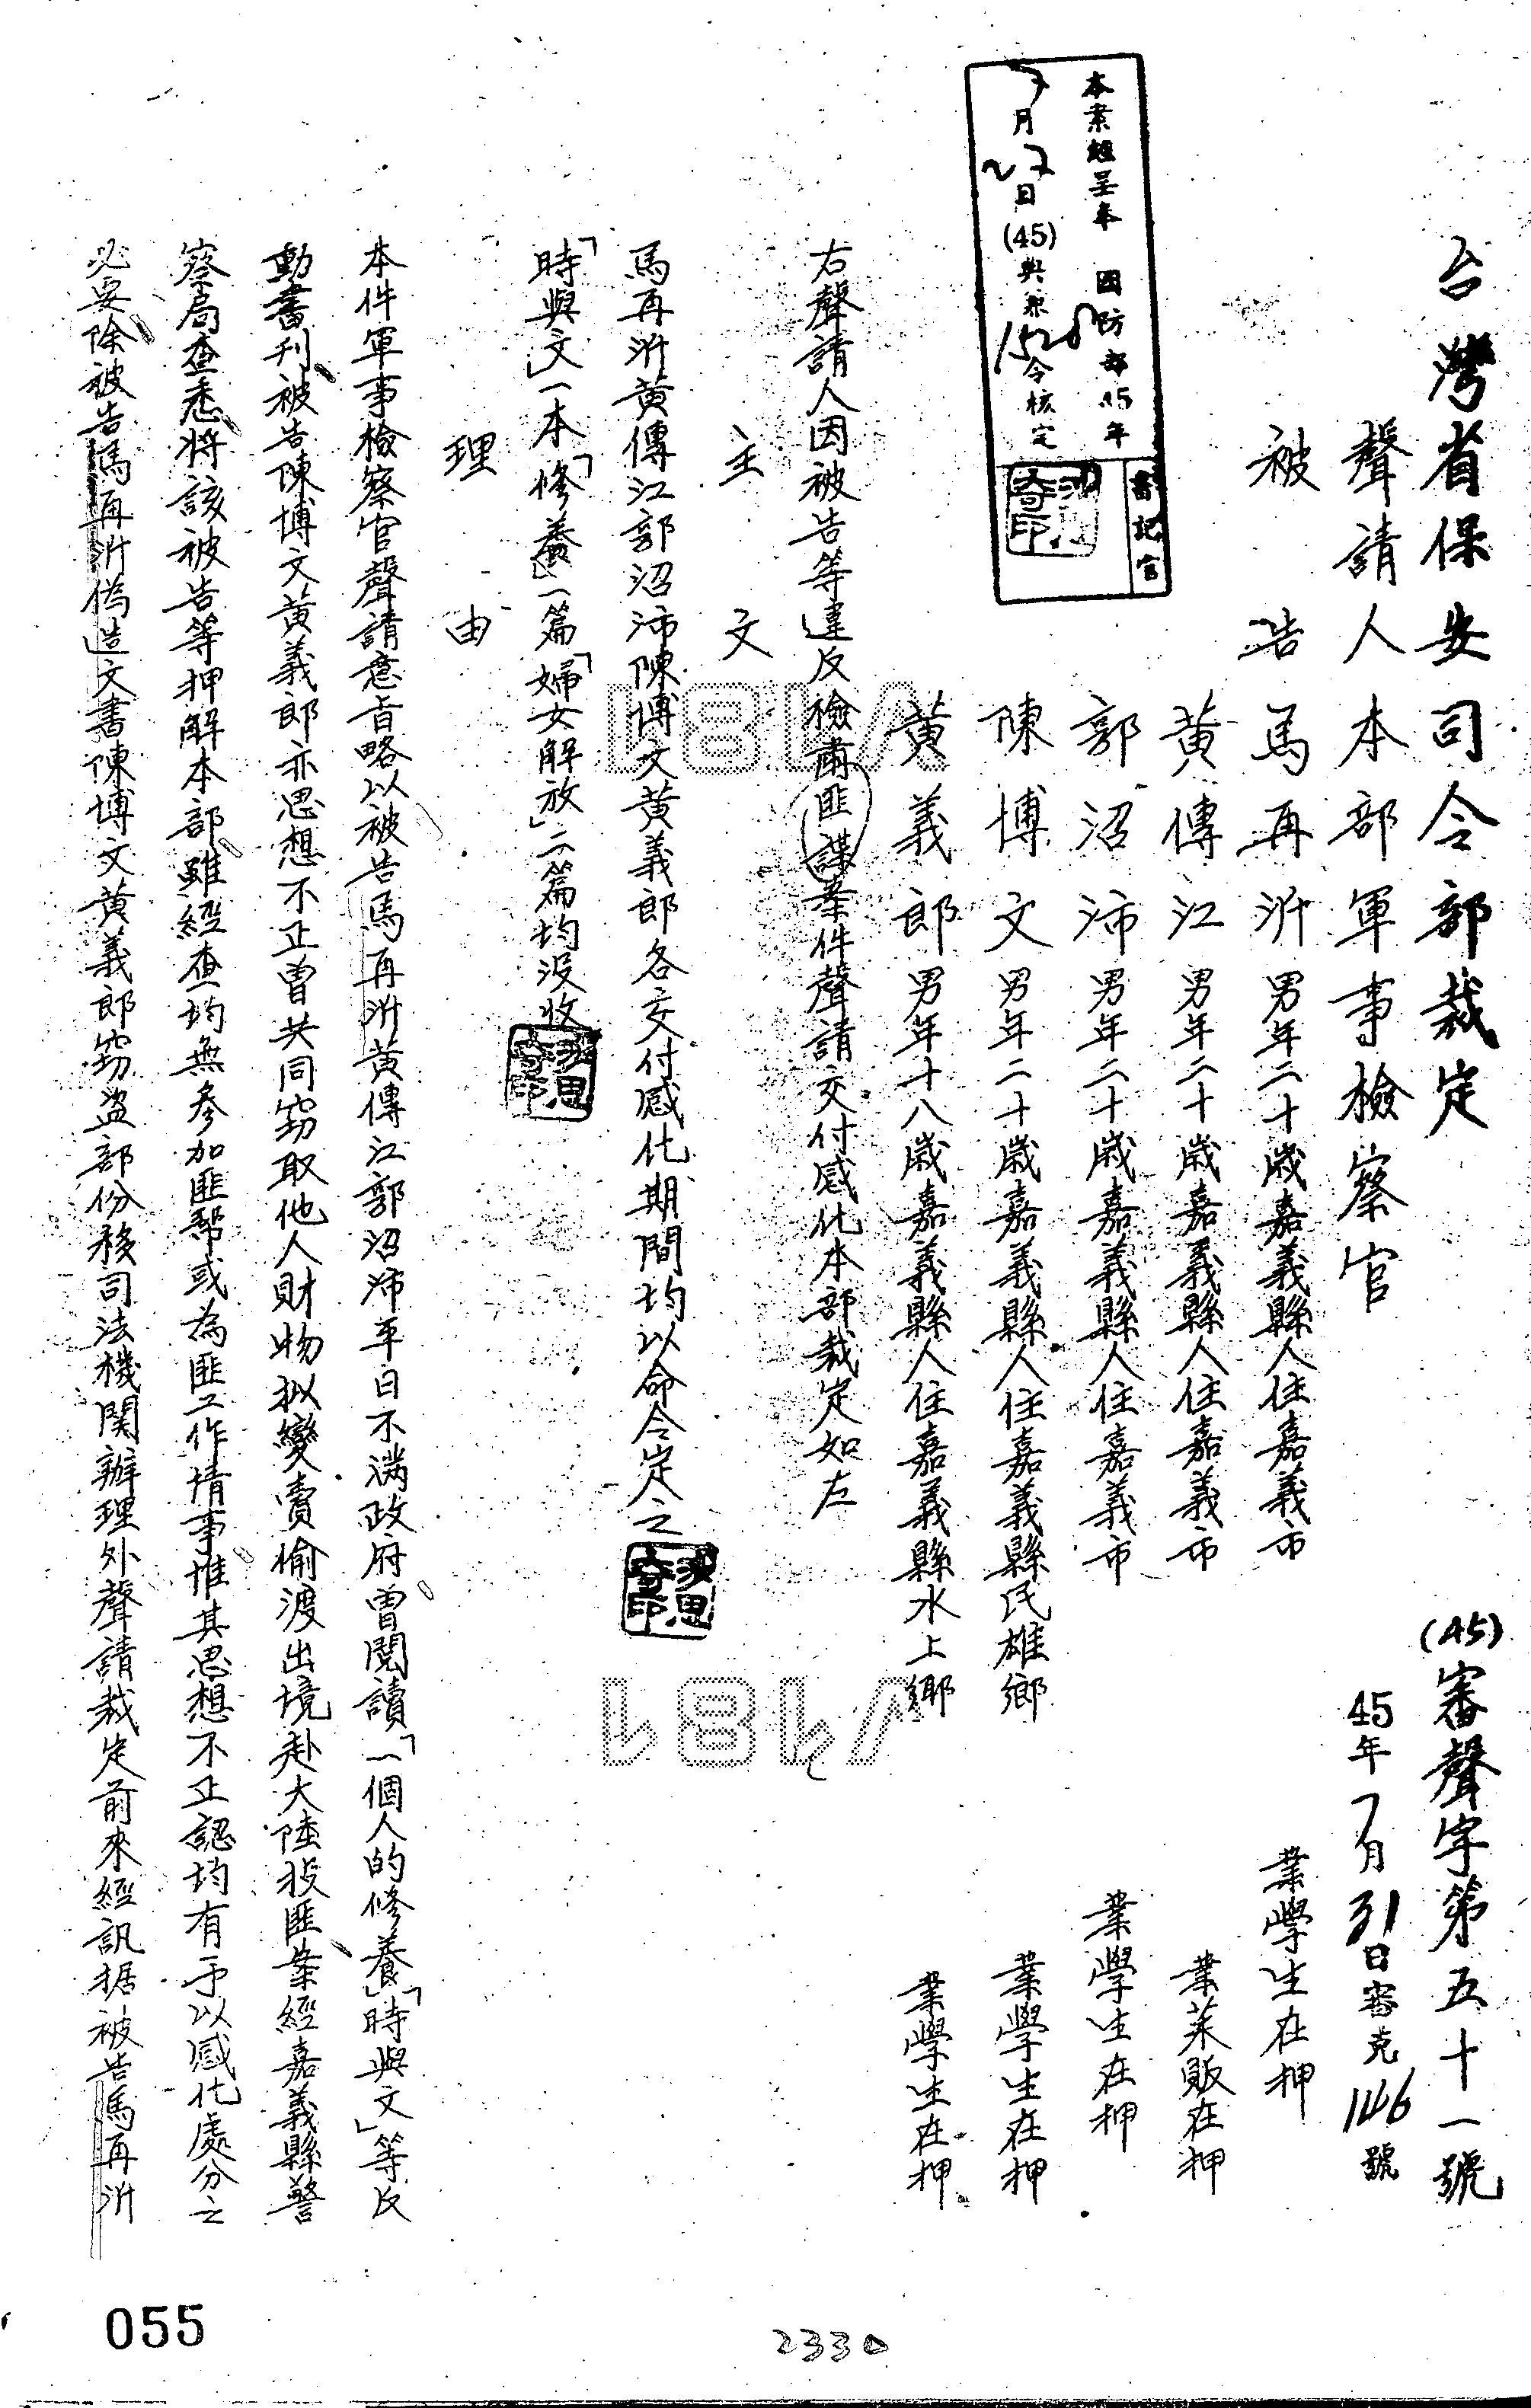 台灣省保安司令部裁定
(45)審聲字第五十一號
聲請人本部軍事檢察官
45年7月31日審克146號
被告馬再沂男年二十歲嘉義縣人住嘉義市
業學生在押
黃傳江男年二十歲嘉義縣人住嘉義市
業菜販在押
郭沼沛男年二十歲嘉義縣人住嘉義市
業學生在押
陳博文男年二十歲嘉義縣人住嘉義縣民雄鄉
業學生在押
黃義郎男年十八歲嘉義縣人住嘉義縣水上鄉
業學生在押
本案經呈奉 國防部45年
7月27日(45)典 令核定
書記官
右聲請人因被告等違反檢肅匪諜案件聲請交付感化本部裁定如左
主文
馬再沂黃傳江郭沼沛陳博文黃義郎各交付感化期間均以命令定之
「時與文」一本「修養」一篇「婦女解放」二篇均沒收
理由
本件軍事檢察官聲請意旨略以被告馬再沂黃傳江郭沼沛平日不滿政府曾閱讀「一個人的修養」「時與文」等反
動書刊被告陳博文黃義郎亦思想不正曾共同竊取他人財物拟變賣偷渡出境赴大陸投匪案經嘉義縣警
察局查悉將該被告等押解本部雖經查均無參加匪幫或為匪工作情事惟其思想不正認均有予以感化處分之
必要除被告馬再沂偽造文書陳博文黃義郎竊盜部份移司法機関辦理外聲請裁定前來經訊据被告馬再沂
V181
V181
055
2330